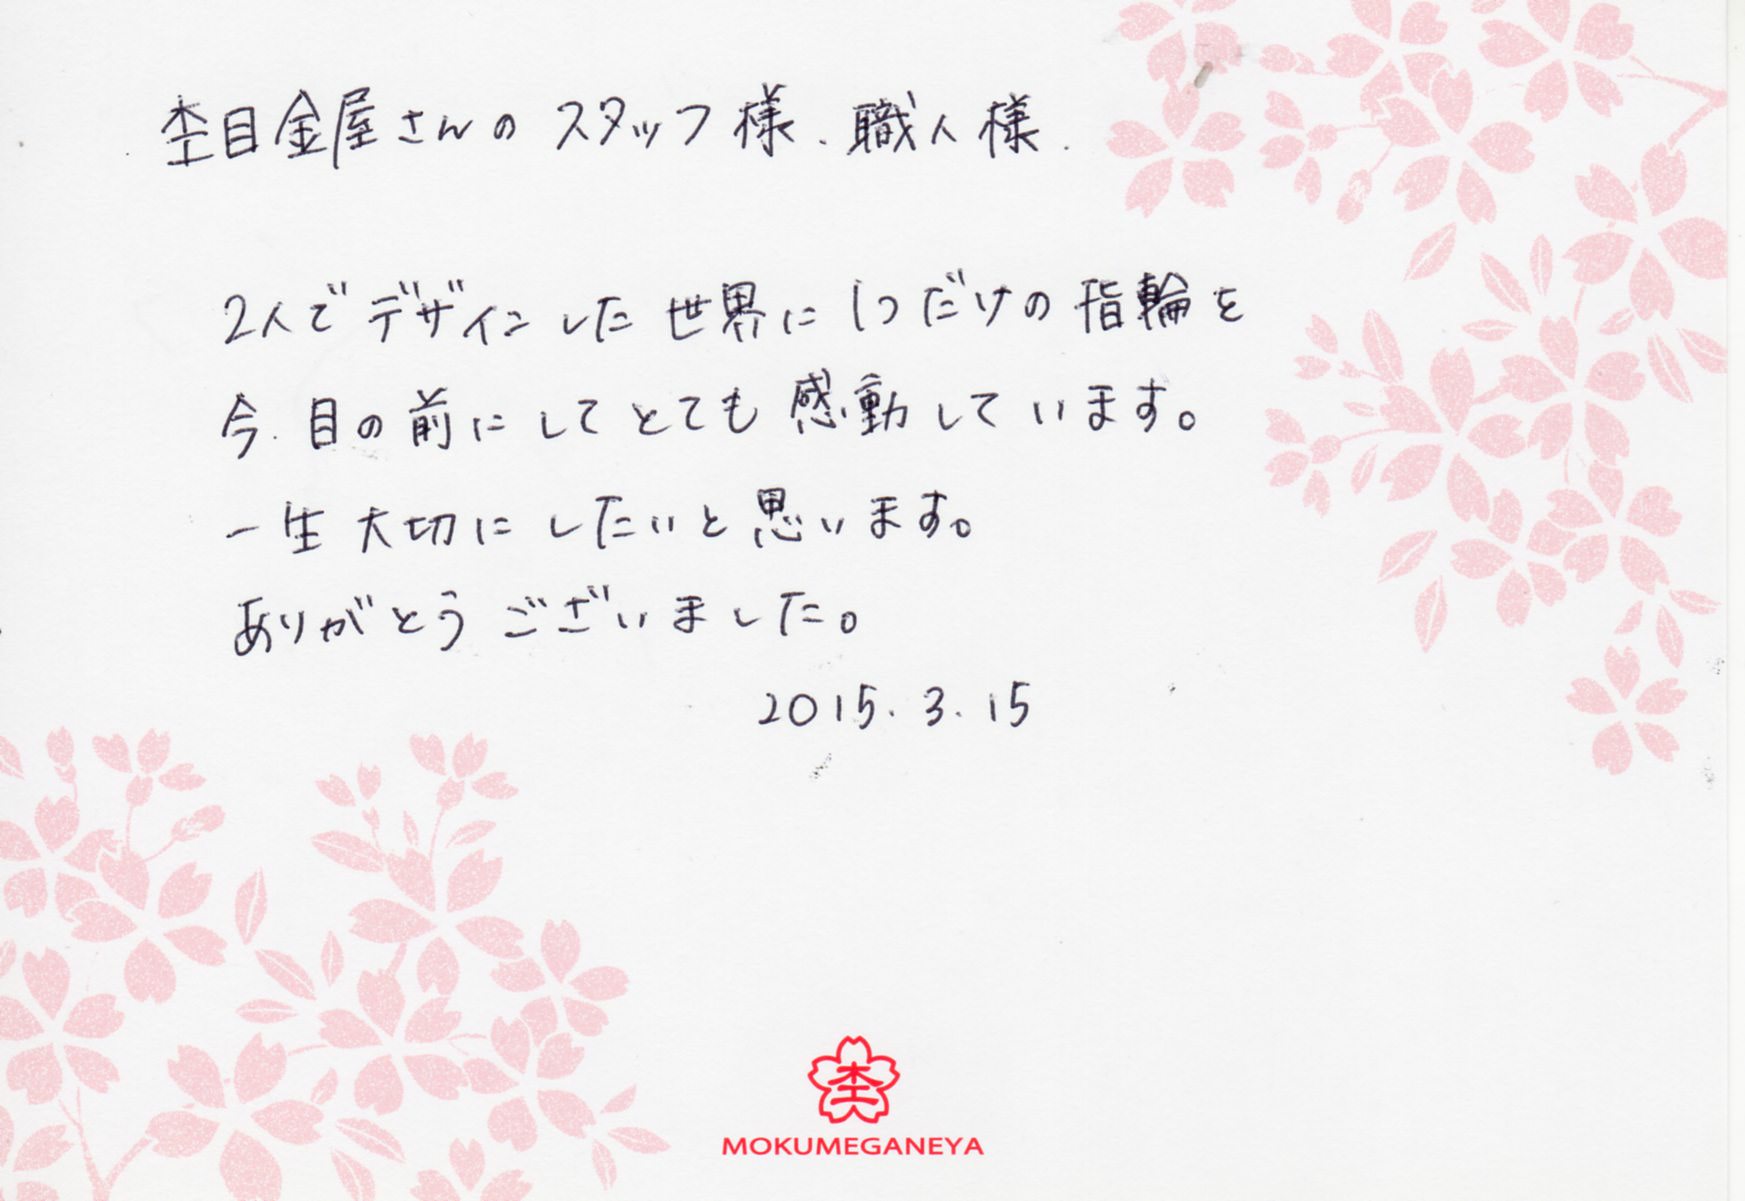 杢目金屋さんの スタッフ様、職人様、
2人で デザインした 世界に 1つだけの 指輪を
今、目の前にして とても 感動しています。
一生 大切に したいと 思います。
ありがとう ございました。
2015.3.15
杢
MOKUMEGANEYA